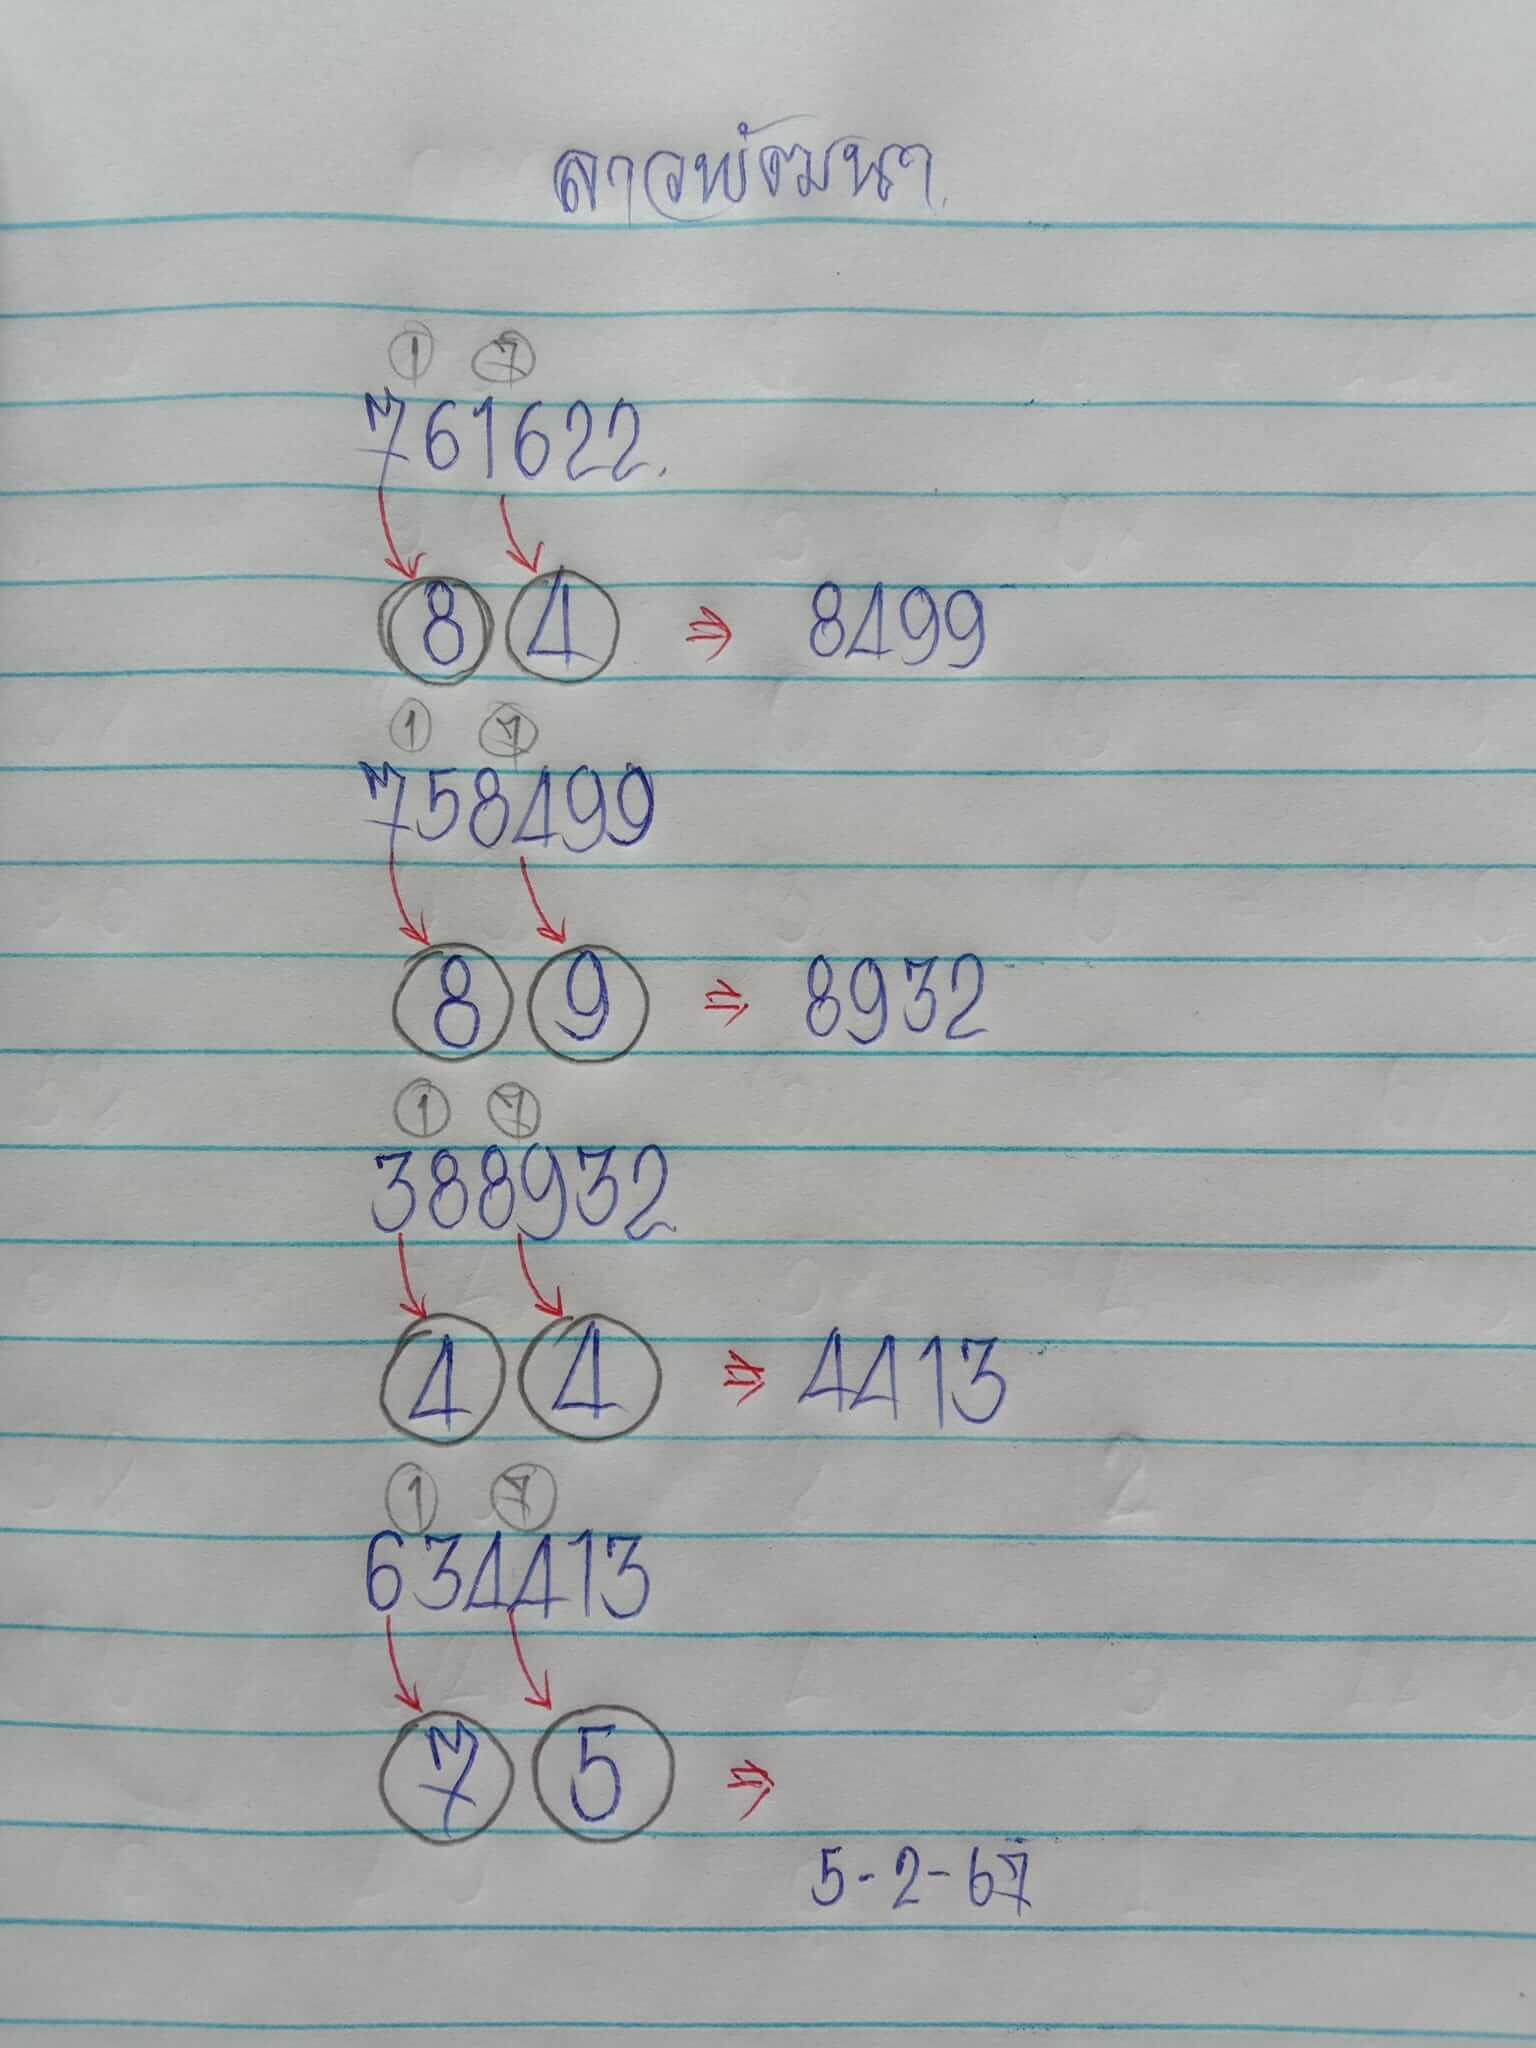 ลาวพัฒนา
1 7
761622
8 4 ⇒ 8499
1 7
758499
8 9 ⇒ 8932
1 7
388932
4 4 ⇒ 4413
1 7
634413
7 5 ⇒
5-2-67